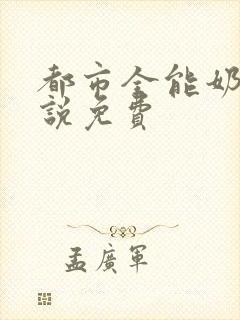 都市全能奶
說免費
孟廣軍